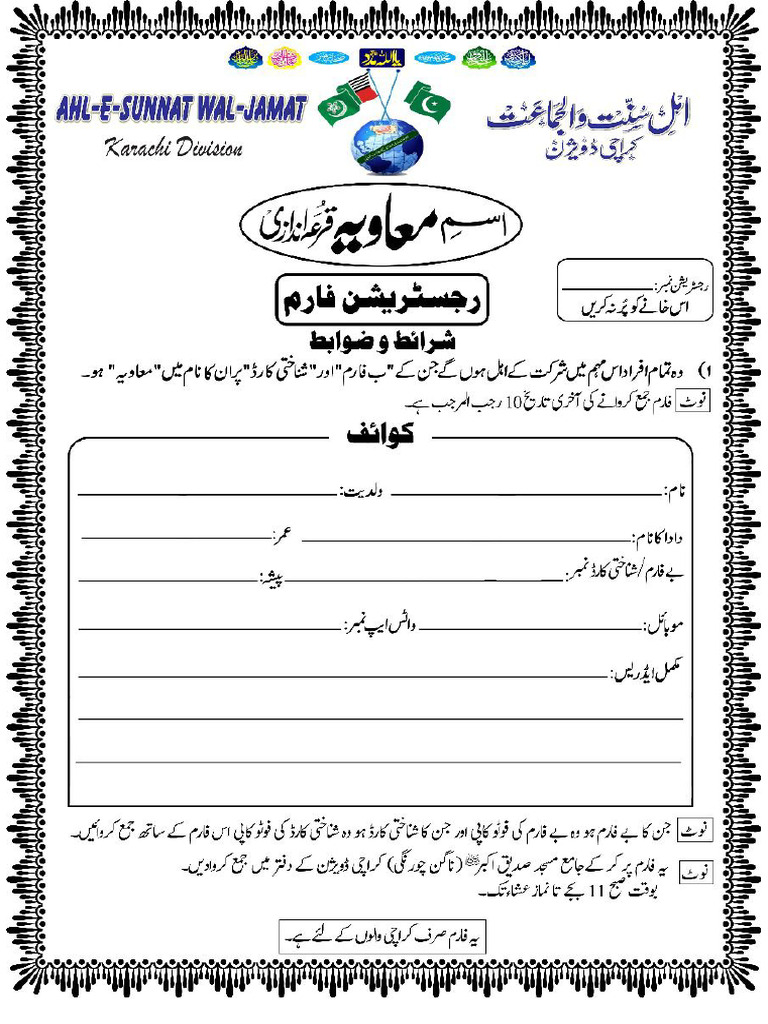 یا اللہ مدد
AHL-E-SUNNAT WAL-JAMAT
Karachi Division
اہلِ سنّت والجماعت
کراچی ڈویژن
اسمِ معاویہ قرعہ اندازی
رجسٹریشن نمبر: ____________
اس خانے کو پُر نہ کریں
رجسٹریشن فارم
شرائط و ضوابط
1) وہ تمام افراد اس مہم میں شرکت کے اہل ہوں گے جن کے "ب فارم" اور "شناختی کارڈ" پر ان کا نام میں "معاویہ" ہو۔
نوٹ فارم جمع کروانے کی آخری تاریخ 10 رجب المرجب ہے۔
کوائف
نام: ____________ ولدیت: ____________
دادا کا نام: ____________ عمر: ____________
بے فارم/شناختی کارڈ نمبر: ____________ پیشہ: ____________
موبائل: ____________ واٹس ایپ نمبر: ____________
مکمل ایڈریس: ____________
نوٹ جن کا بے فارم ہو وہ بے فارم کی فوٹو کاپی اور جن کا شناختی کارڈ ہو وہ شناختی کارڈ کی فوٹو کاپی اس فارم کے ساتھ جمع کروائیں۔
نوٹ یہ فارم پر کر کے جامع مسجد صدیق اکبرؓ (ناگن چورنگی) کراچی ڈویژن کے دفتر میں جمع کروادیں۔
بوقت صبح 11 بجے تا نماز عشاء تک۔
یہ فارم صرف کراچی والوں کے لئے ہے۔